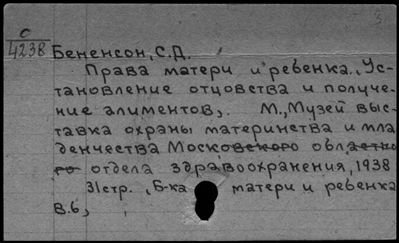 С
4238
Бененсон, С.Д.
Права матери и ребенка., Ус-
тановление отцовства и получе-
ние алиментов,. М., Музей выс-
тавка охраны материнства и мла
денчества Московского областно
го отдела здравоохранения, 1938
31стр., Б-ка матери и ребенка
в.6,